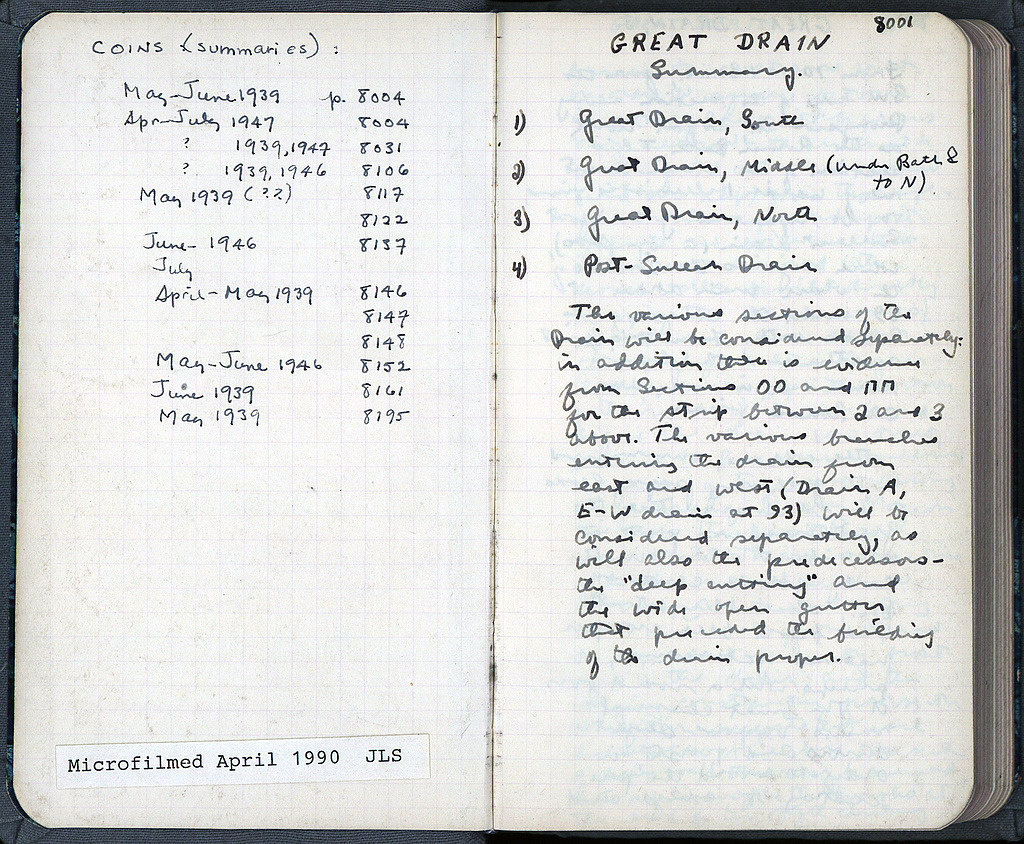 COINS (summaries) :
May-June 1939 p. 8004
Apr-July 1947 8004
? 1939, 1947 8031
? 1939, 1946 8106
May 1939 (??) 8117
8122
June- 1946 8137
July
April-May 1939 8146
8147
8148
May-June 1946 8152
June 1939 8161
May 1939 8195
Microfilmed April 1990 JLS
8001
GREAT DRAIN
Summary.
1) Great Drain, South
2) Great Drain, Middle (under Bath &
to N)
3) Great Drain, North
4) Post-Sullan Drain
The various sections of the
Drain will be considered separately:
in addition there is evidence
from Sections OO and ΠΠ
for the strip between 2 and 3
above. The various branches
entering the drain from
east and west (Drain A,
E-W drain at 93) will be
considered separately, as
will also the predecessors-
the "deep cutting" and
the wide open gutter
that preceded the building
of the drain proper.